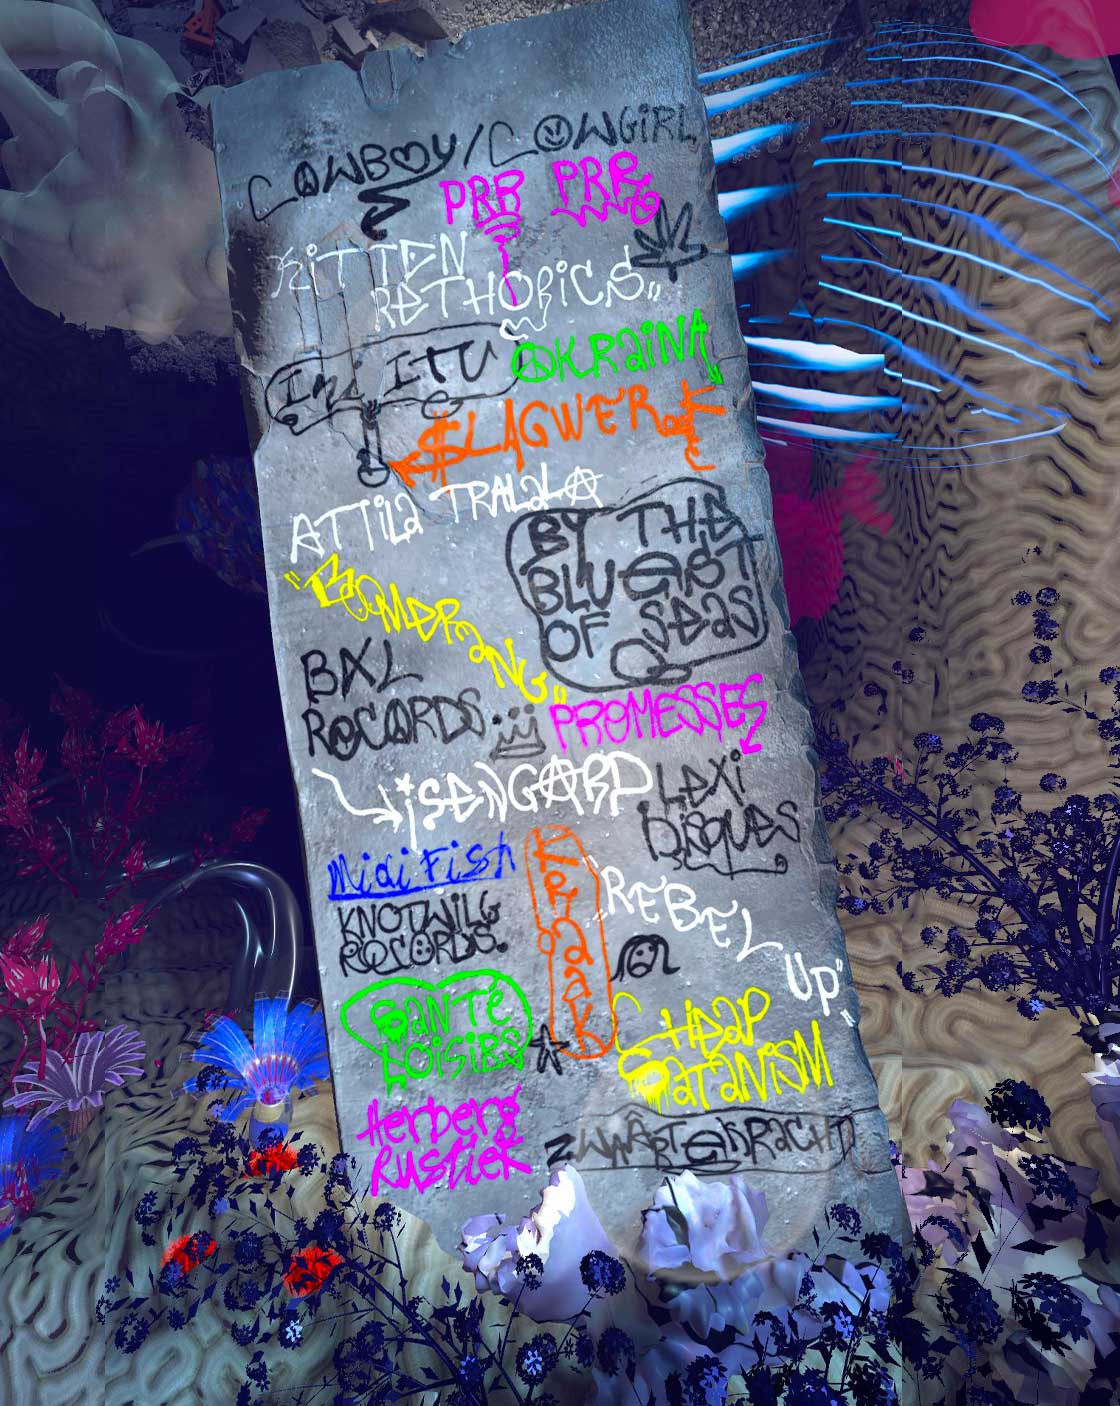 COWBOY/COWGIRL
PRR PRR
KITTEN
RETHORICS"
INI ITU
OKRAINA
$LAGWERK
ATTILA TRALALA
BY THE
BLUEST
OF SEAS
"BOMERANG"
BXL
RECORDS
PROMESSES
ISENGARD
LEXI
DISQUES
Midi Fish
KRAAK
"REBEL
UP"
KNOTWILG
RECORDS.
SANTÉ
LOISIRS
CHEAP
SATANISM
Herberg
Rustiek
ZWAARTEKRACHT